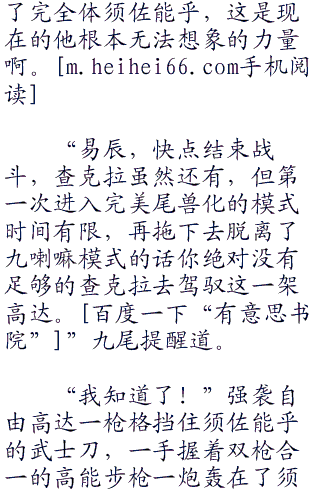 了完全体须佐能乎，这是现
在的他根本无法想象的力量
啊。[m.heihei66.com手机阅
读]
“易辰，快点结束战
斗，查克拉虽然还有，但第
一次进入完美尾兽化的模式
时间有限，再拖下去脱离了
九喇嘛模式的话你绝对没有
足够的查克拉去驾驭这一架
高达。[百度一下“有意思书
院”]”九尾提醒道。
“我知道了！”强袭自
由高达一枪格挡住须佐能乎
的武士刀，一手握着双枪合
一的高能步枪一炮轰在了须